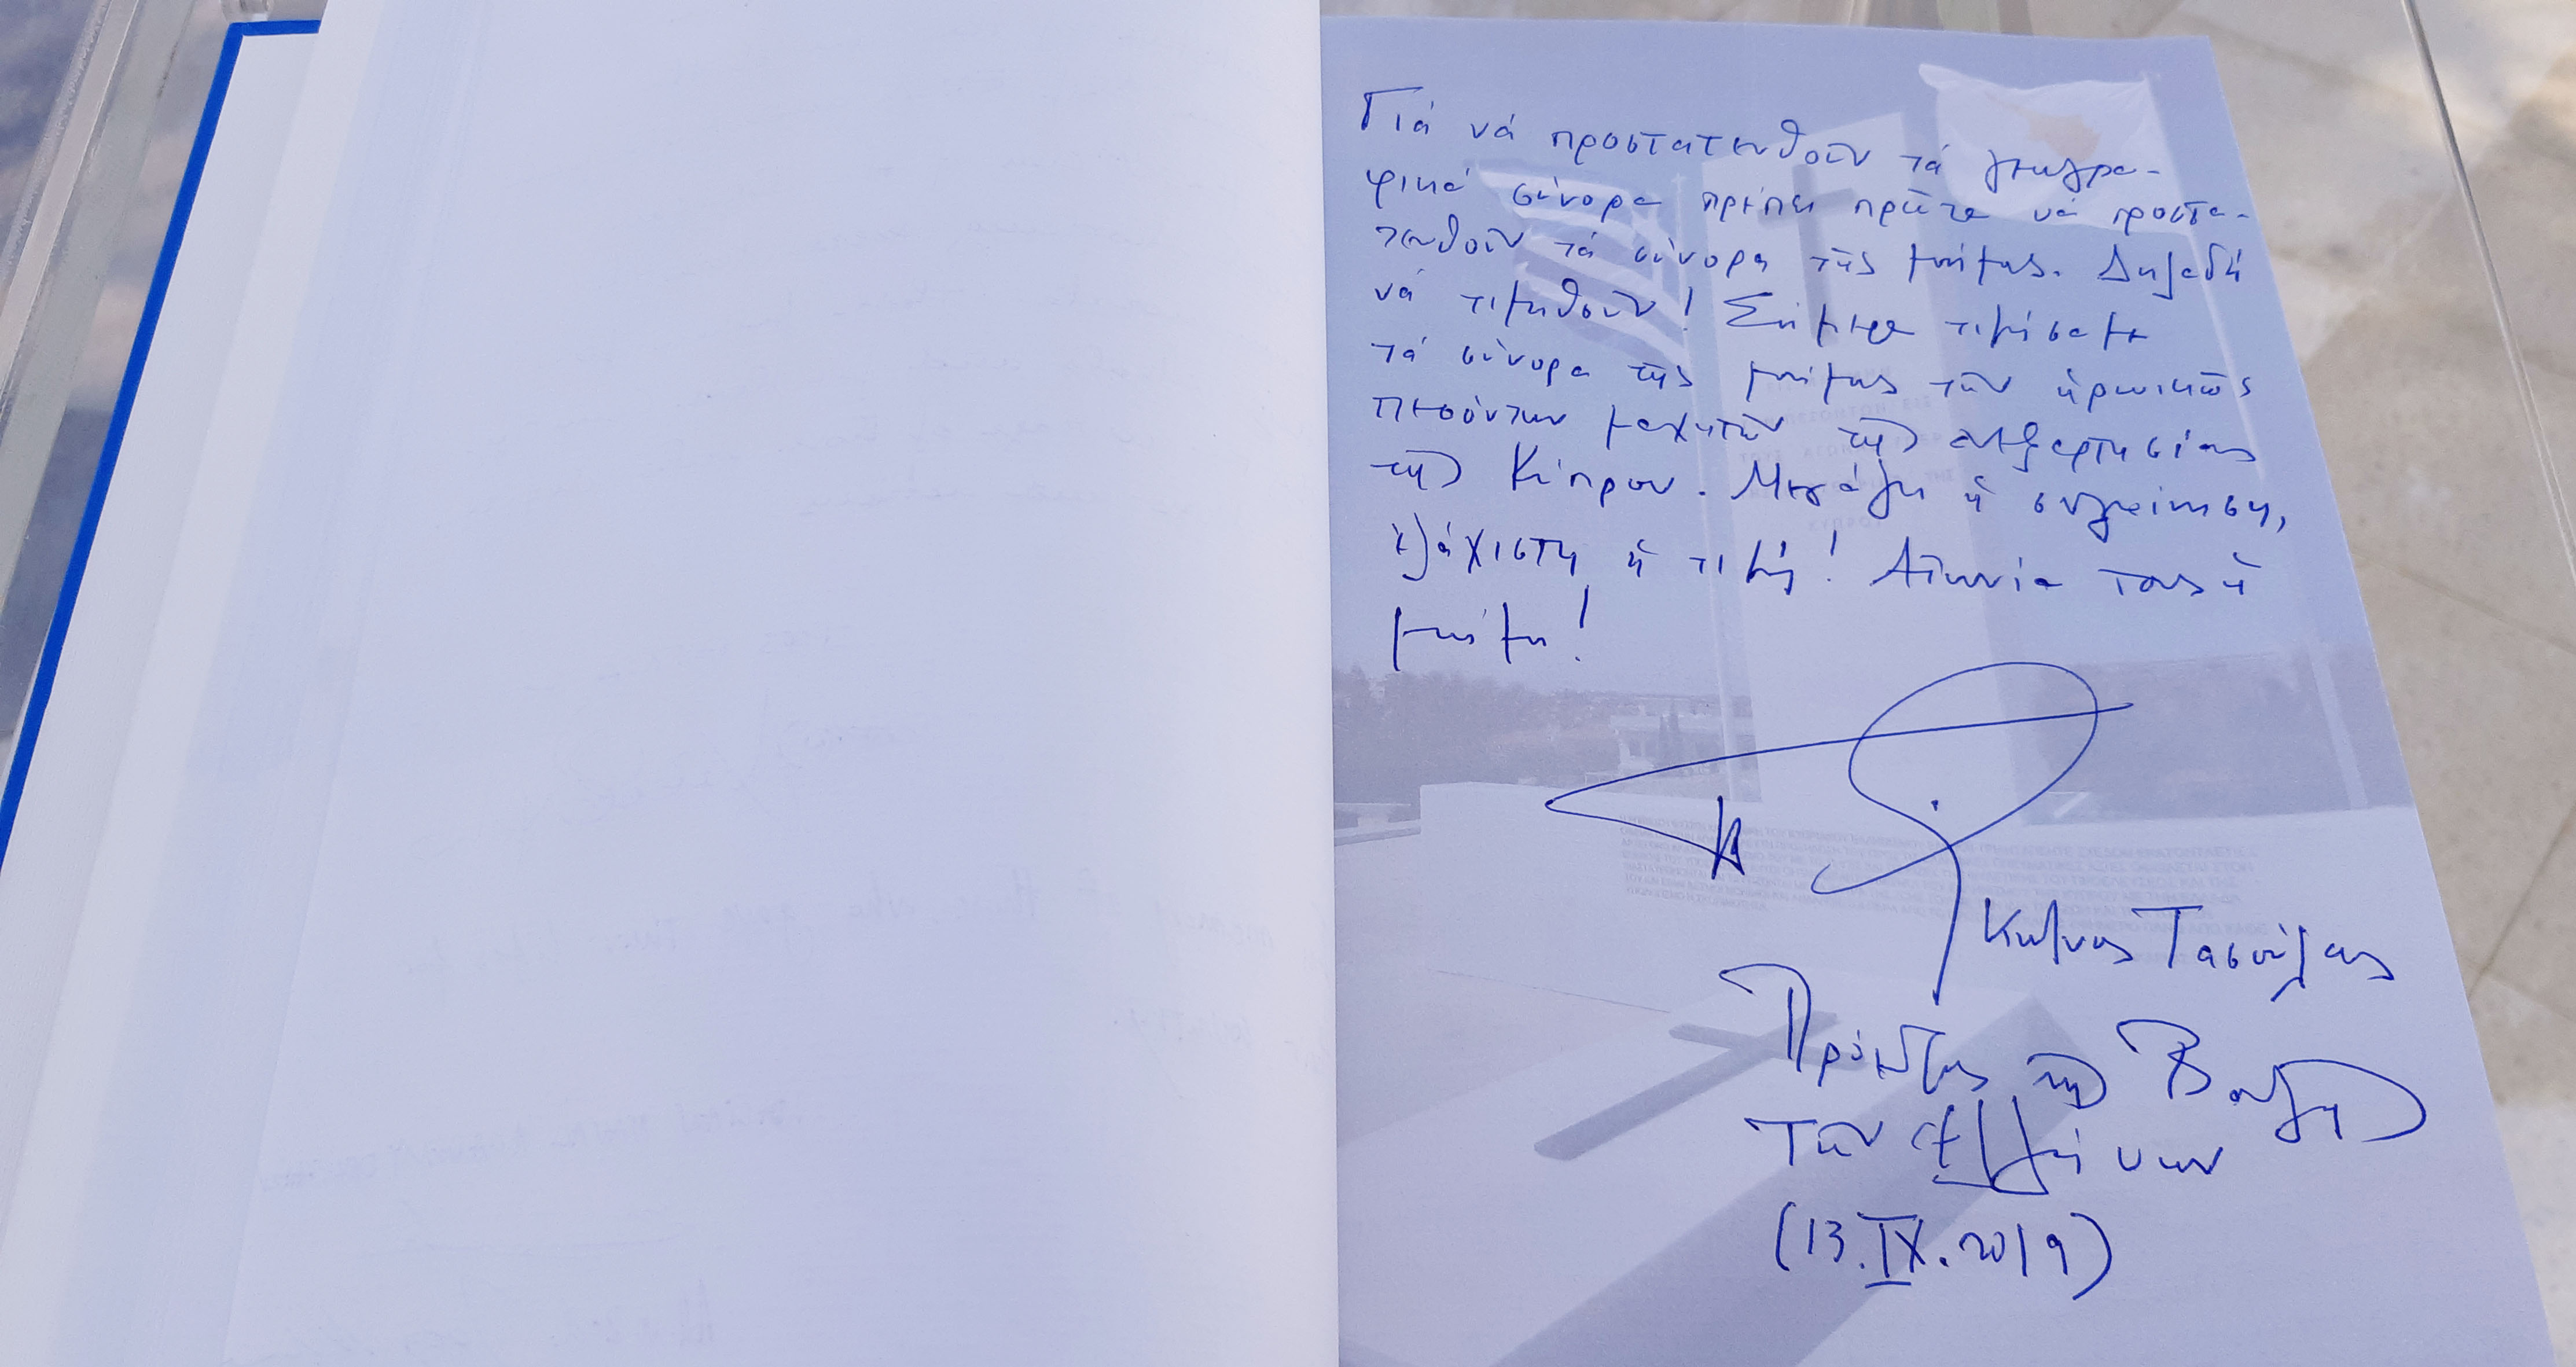 Γιά νά προστατευθοῦν τά γεωγρα-
φικά σύνορα πρέπει πρῶτα νά προστα-
τευθοῦν τά σύνορα τῆς μνήμης. Δηλαδή
νά τιμηθοῦν! Σήμερα τιμήσαμε
τά σύνορα τῆς μνήμης τῶν ἡρωικῶς
πεσόντων μαχητῶν τῆς ἀνεξαρτησίας
τῆς Κύπρου. Μεγάλη ἡ συγκίνηση,
ἐλάχιστη ἡ τιμή! Αἰωνία τους ἡ
μνήμη!
Κων/νος Τασούλας
Πρόεδρος τῆς Βουλῆς
Τῶν Ἑλλήνων
(13.IX.2019)